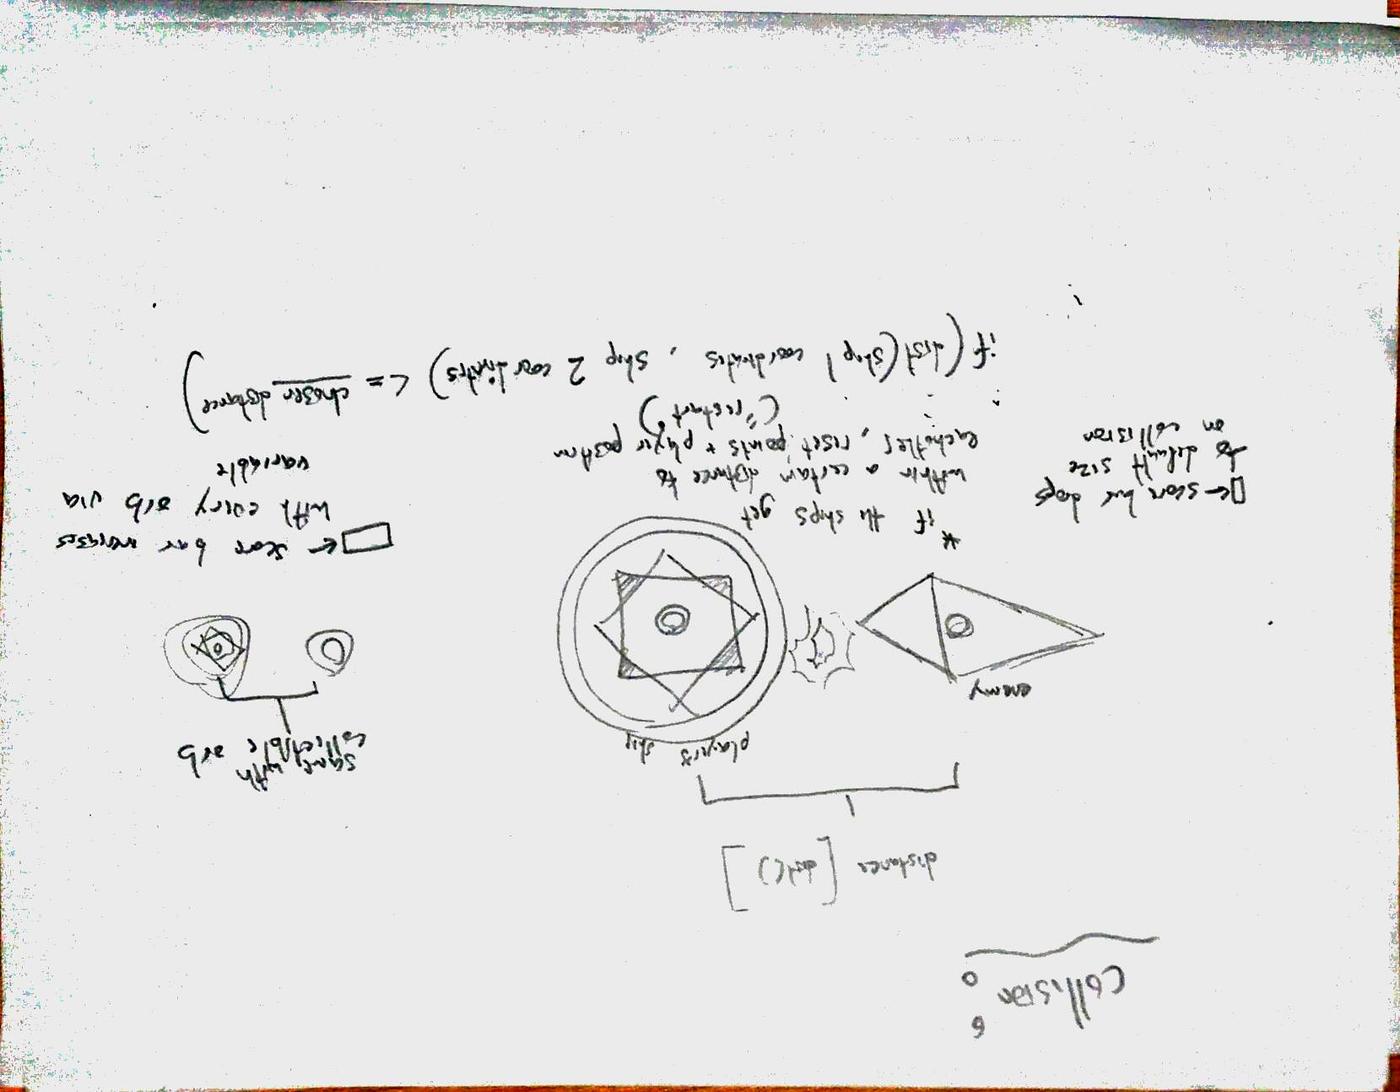 Collision:
distance [dist()]
player's ship
enemy
same with
collectible orb
* if the ships get
within a certain distance to
eachother, reset points + player position
("restart")
□ ← score bar drops
to default size
on collision
□ → score bar increases
with every orb via
variable
if (dist(ship 1 coordinates, ship 2 coordinates) <= chosen distance)